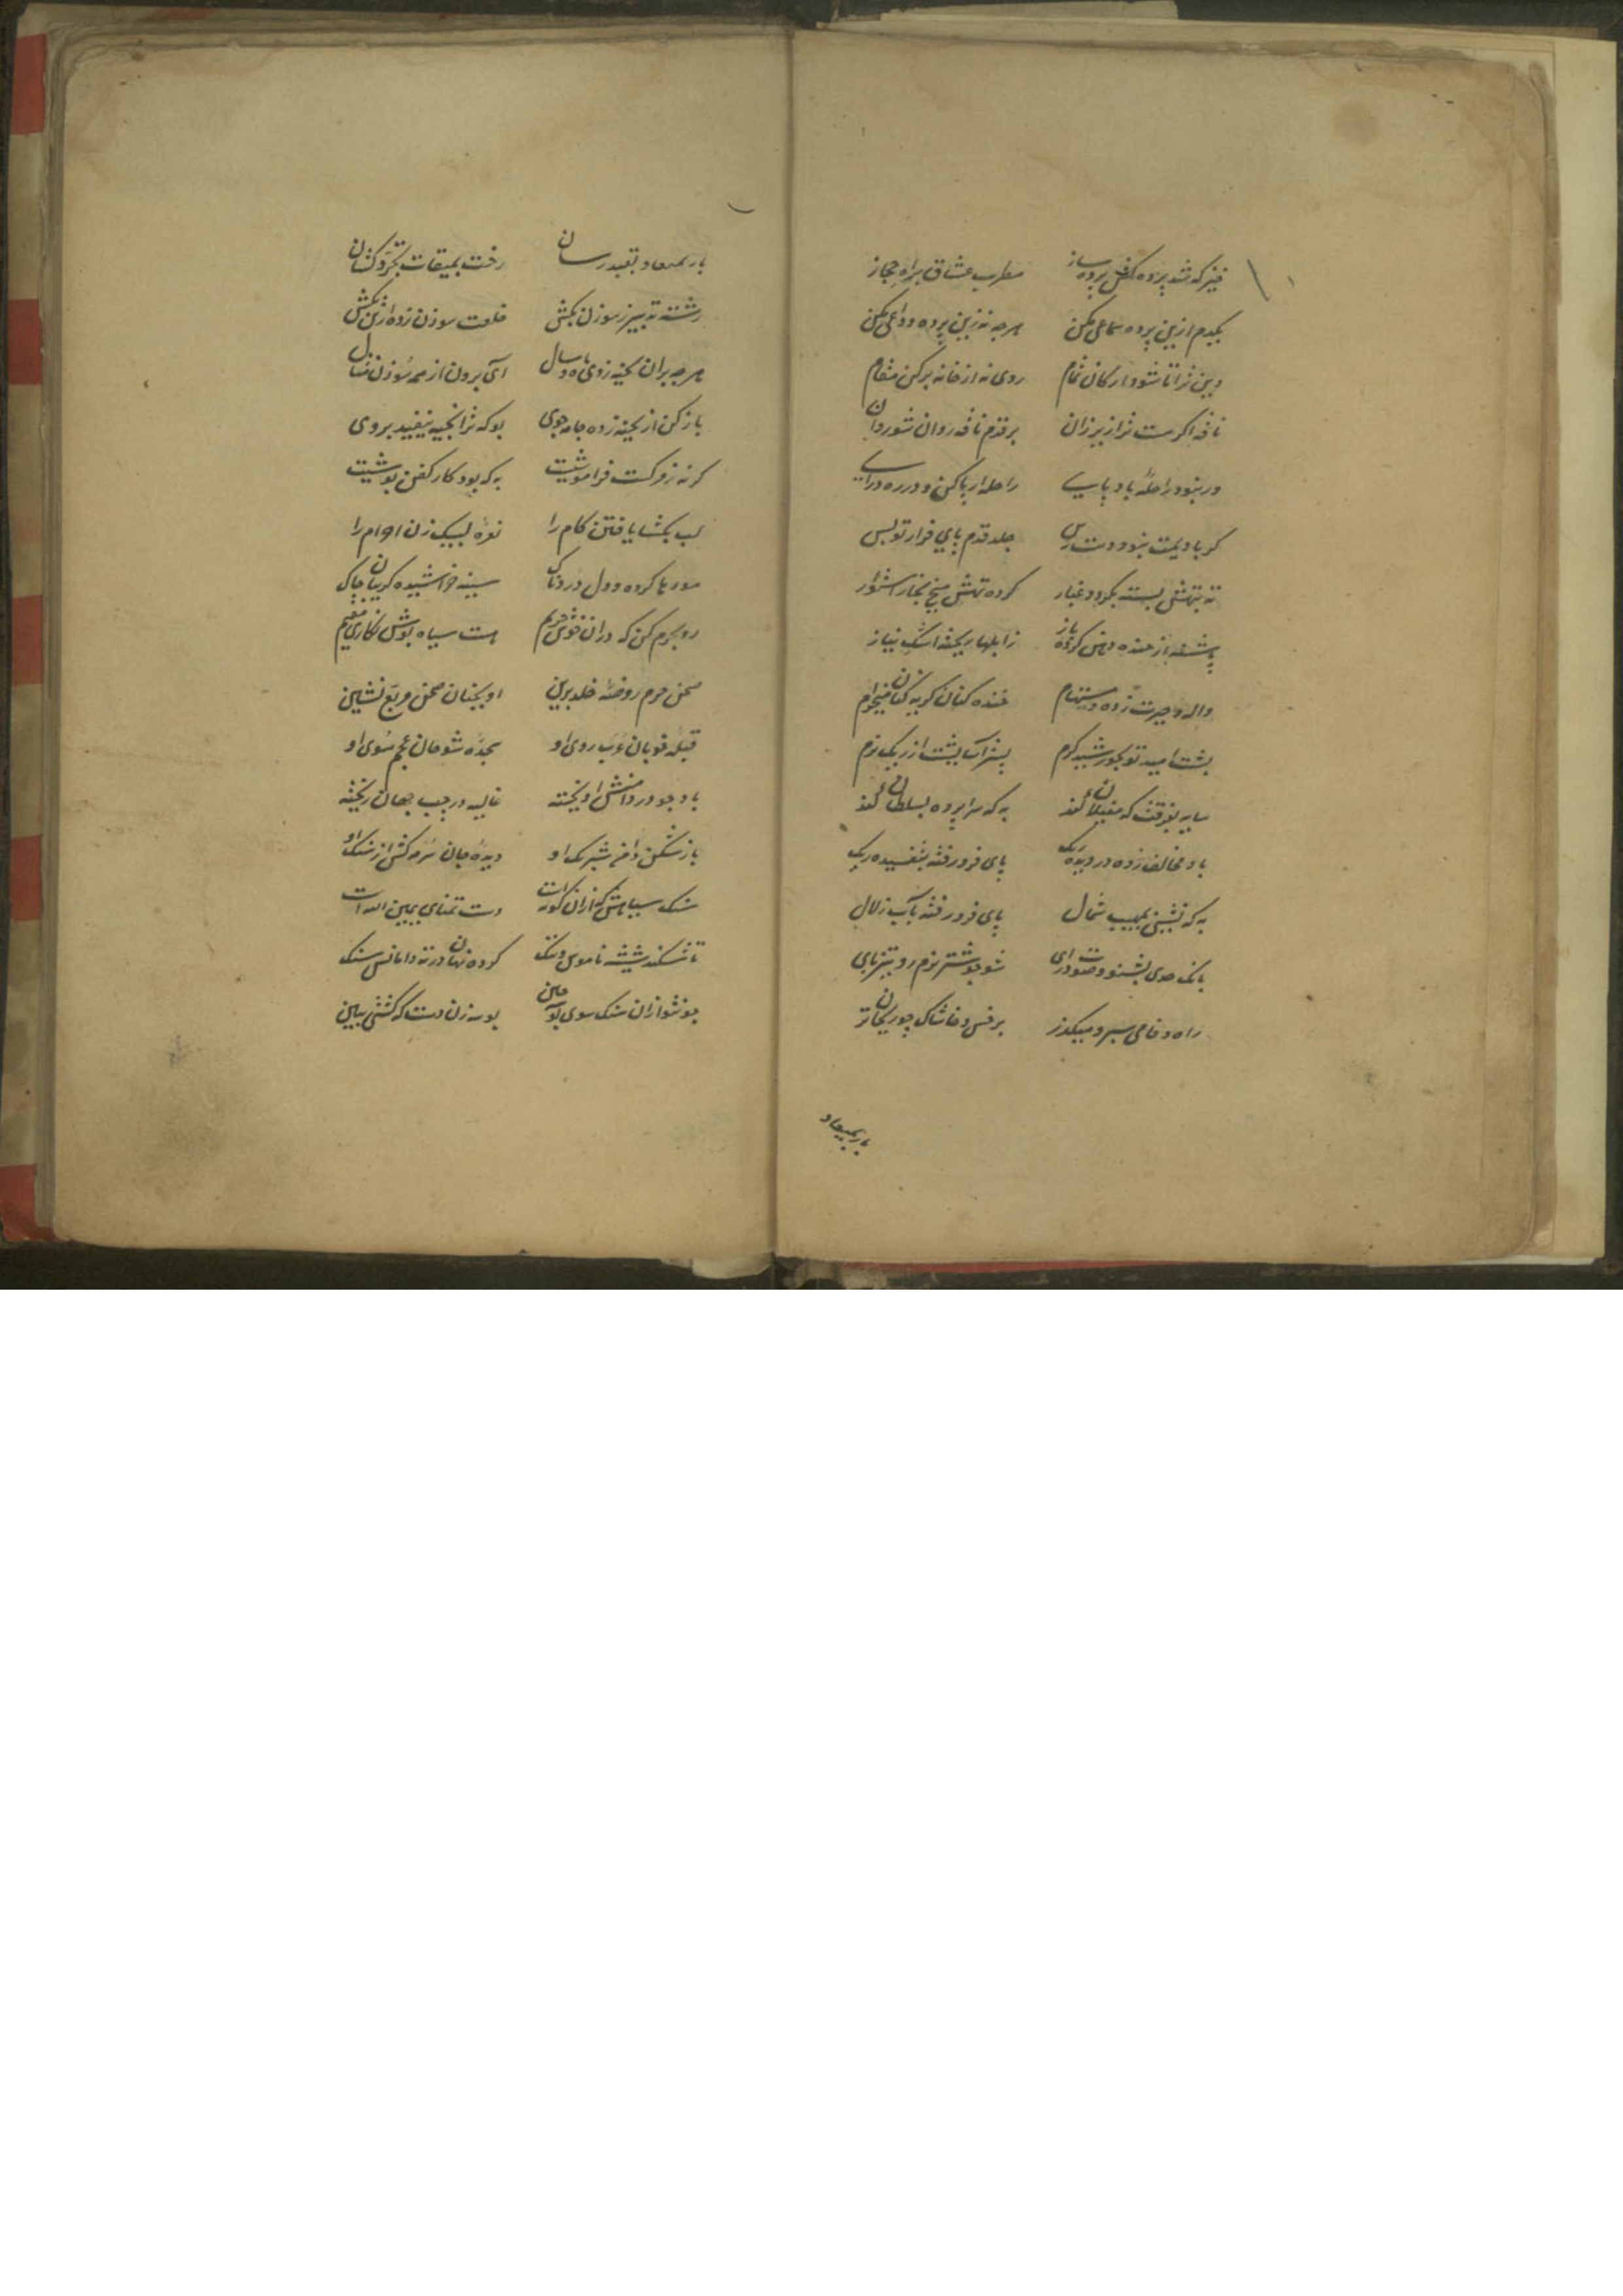 خیز که شد پرده کش پرده ساز مطرب عشاق براه حجاز
یکدم ازین پرده سماعی بکن هرچه نه زین پرده وداعی بکن
دین ترا تا شود ارکان تمام روی نه از خانه برکن مقام
ناقه اگر نیست ترا زیر ران بر قدم ناقه روان شو روان
ور نبود راحله باد پای راحله از پا کن و در ره درای
کر بادیمت نبود دست رس جلد قدم پای فرار تو بس
ته بتهش بسته بکرد و غبار کرده تهش میخ بخار استوار
پاشنه از خنده دهن کرده باز ز ابلها ریخته اشک نیاز
واله و حیرت زده و مستهام خنده کنان کریه کنان میخرام
پشت امید تو بخورشید کرم بستر آسایشت از ریک نرم
سایه بفرقت که مغیلان کند به که سراپرده سلطان کند
باد مخالف زده در دیده ریک پای فرو رفته بتفسیده ریک
به که نشینی بمهب شمال پای فرو رفته بآب زلال
بانک حدی بشنو و صوت درای شو چو شتر نرم رو و تیز پای
راه وفا می سپر و میکذر بر خس و خاشاک چو ریحان تر
بار بمیعاد
بار بمیعاد تعبد رسان رخت بمیقات تجرد کشان
رشته تدبیر ز سوزن بکش خلعت سوزن زده از تن بکش
هرچه بران بخیه زدی ماه و سال آی برون از همه سوزن مثال
باز کن از بخیه زده جامه جوی بو که ترا بخیه نیفتد بروی
کر نه ز مرکست فراموشیت به که بود کار کفن پوشیت
لب بکشا یافتن کام را نعره لبیک زن احرام را
موی پراکنده و دل دردناک سینه خراشیده کریبان چاک
رو بحرم کن که در ان خوش حریم هست سیاه پوش نکاری مقیم
صحن حرم روضه خلد برین او بچنان صحن مربع نشین
قبله خوبان عرب روی او سجده شوخان عجم سوی او
باد چو در دامنش اویخته غالیه در جیب جهان ریخته
باز شکن دامن شبرنک او دیده جان سرمه کش از سنک او
سنک سیاهش که ازان کوته است دست تمنای یمین الله است
تا شکند شیشه ناموس و ننک کرده نهان در ته دامانش سنک
چون تو ازان سنک سوی بوسه چین بوسه زن دست که کشتی ببین